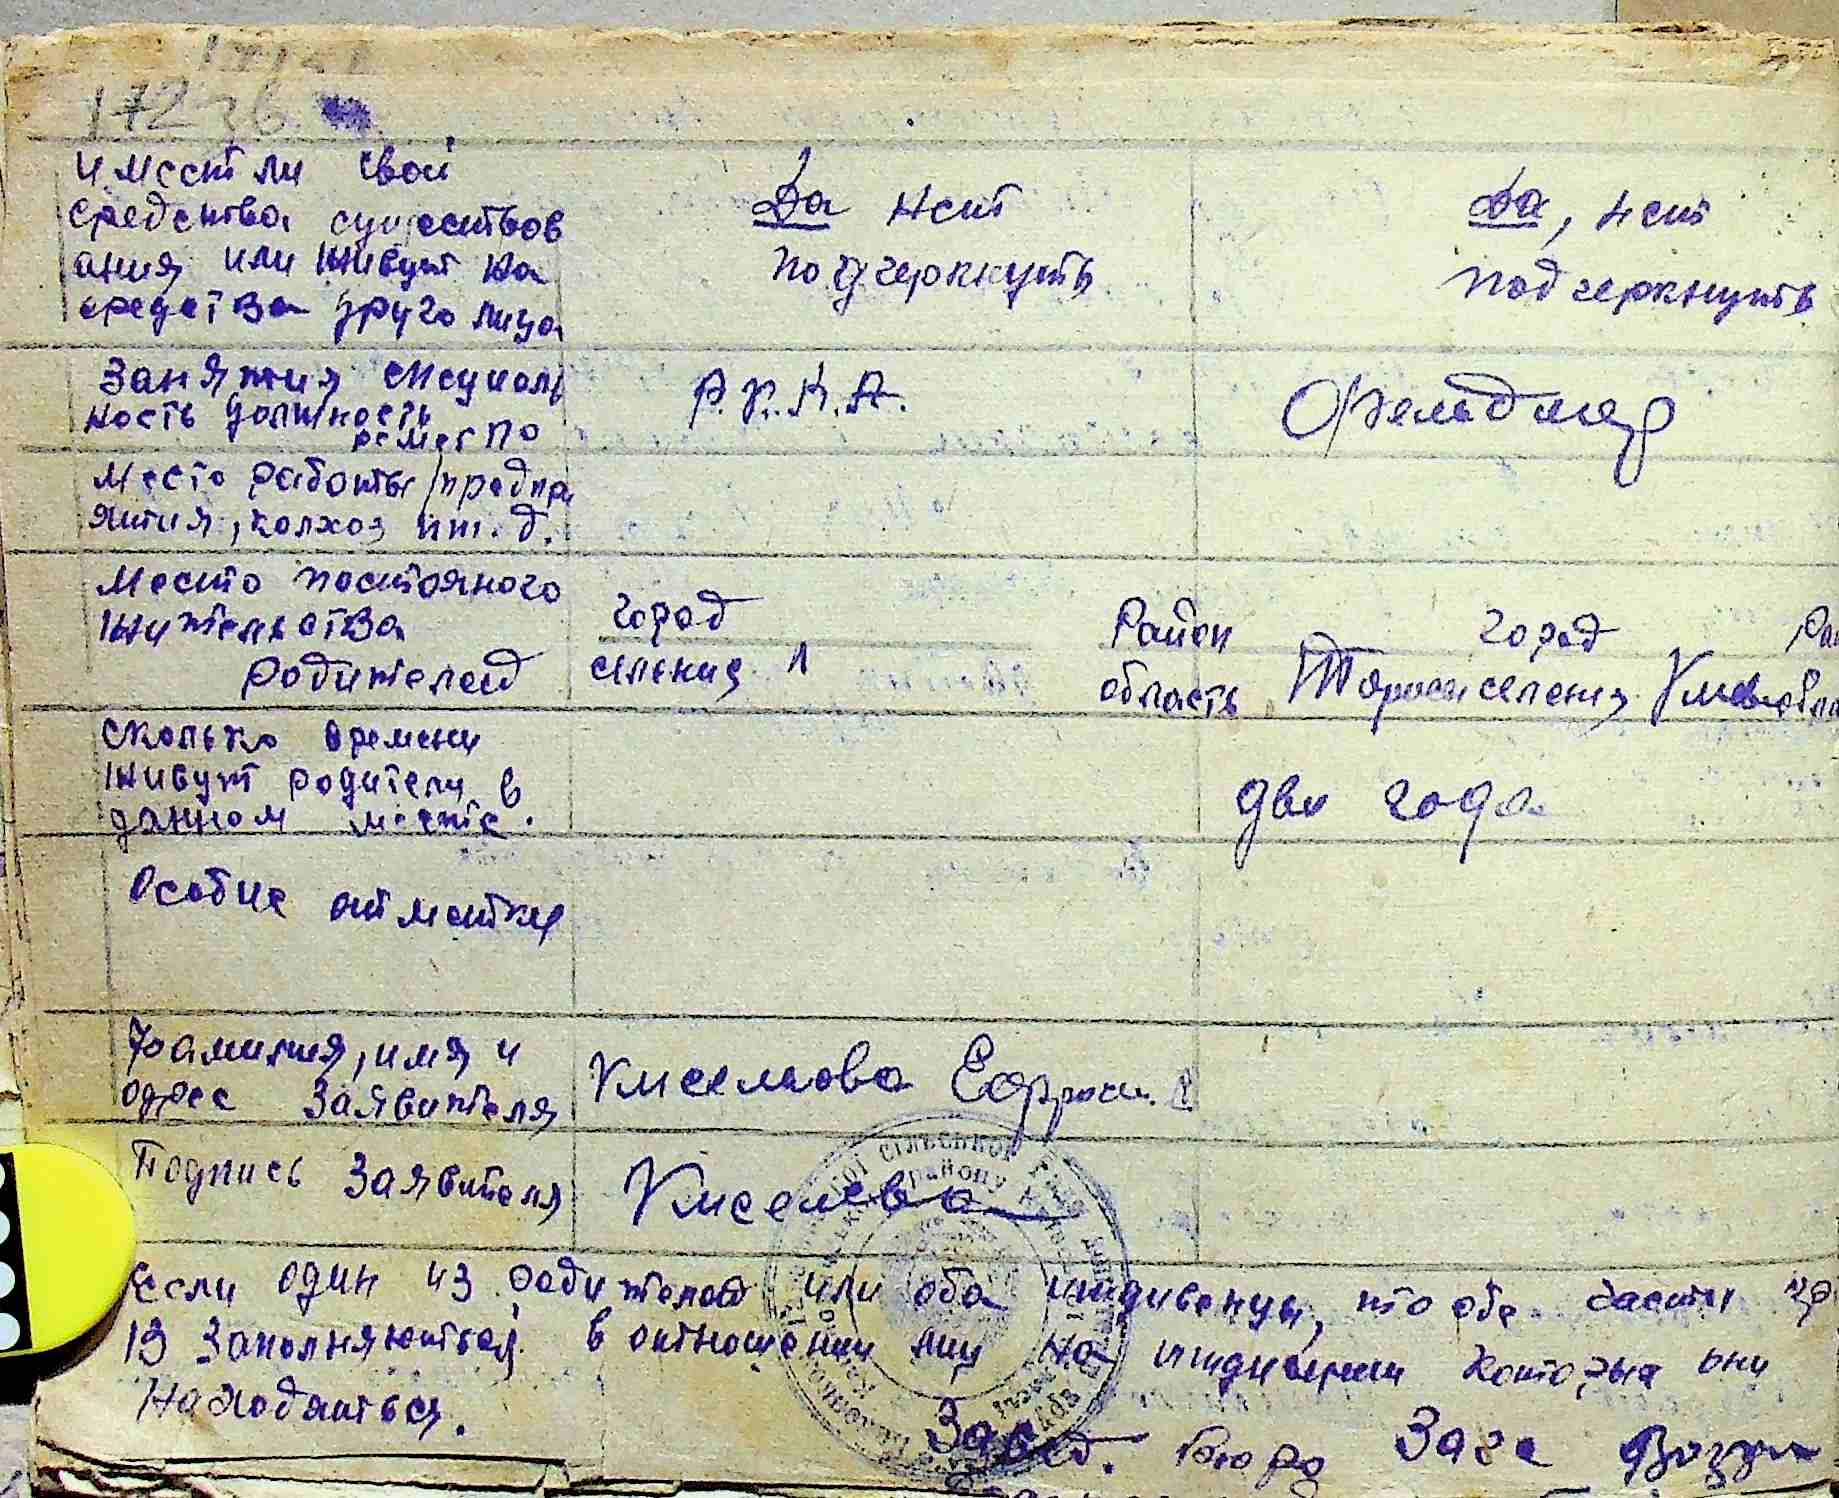 17236
имеет ли свои
средства существов
ания или живут на
средства друго лица
Да нет
подчеркнуть
да, нет
подчеркнуть
Занятия специаль
ность должность
ремесло
Р.К.К.А.
Фельдшер
Место работы /предпр
ятия, колхоз и т.д.
Место постояного
жительства
родителей
город
селения
Район
область
город
селения
сколько времени
живут родители в
данном месте.
два года
Особие отметки
Фамилия, имя и
одрес заявителя
Киселиова Ефрос.
Подпись заявителя
Киселева
СІЛЬСЬКОЇ РАДИ
району
Если один из родителей или оба иждивенцы, то обе части
13 заполняються в отношении лиц на иждивении которых они
находяться.
Завед. бюро Загс